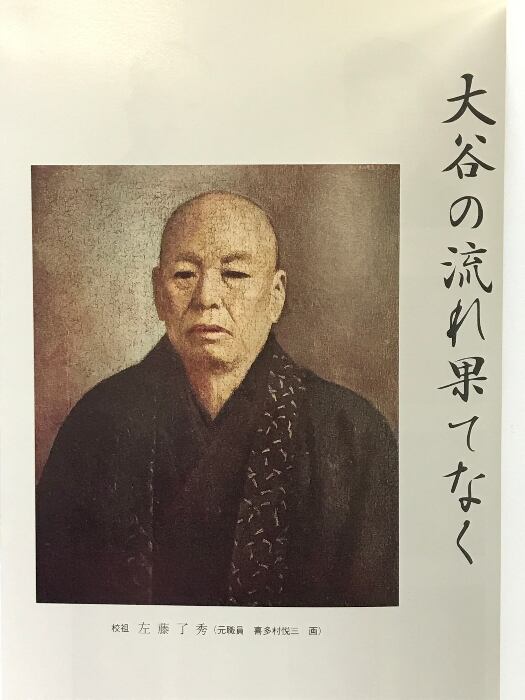 大谷の流れ果てなく
校祖 左藤了秀(元職員 喜多村悦三 画)